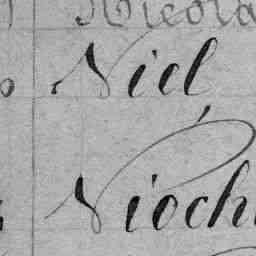 Nicola
Niel,
Nioch